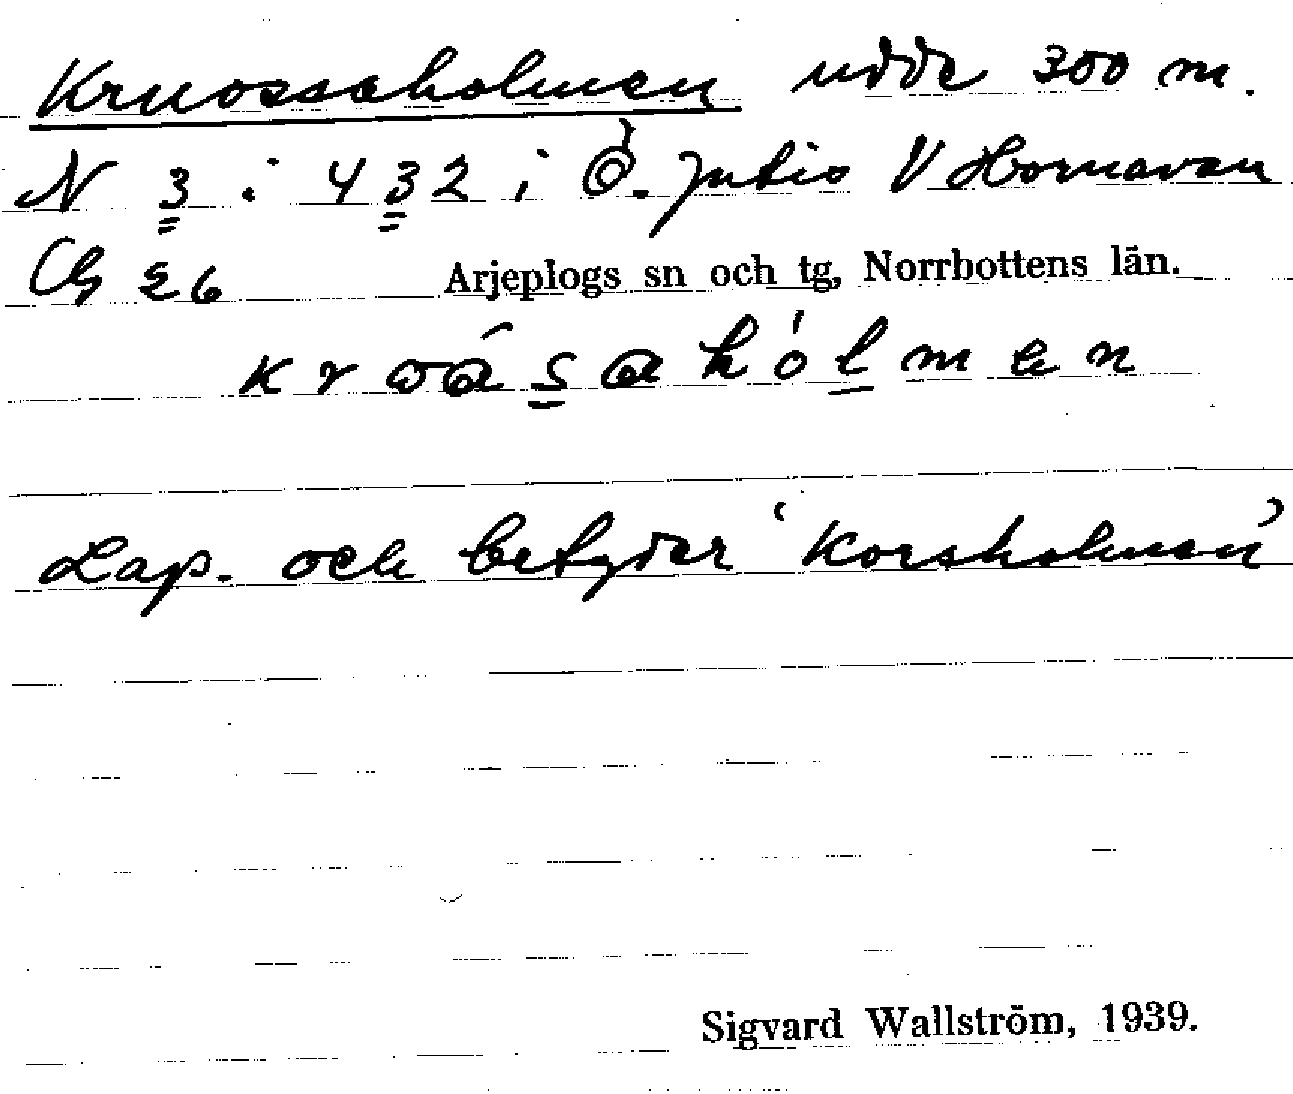 Kruossaholmen udde 300 m.
N 3 i 432 i Ö. Jutis V Hornavan
Cg 26 Arjeplogs sn och tg, Norrbottens län.
Lap. och betyder 'Korsholmen'
Sigvard Wallström, 1939.